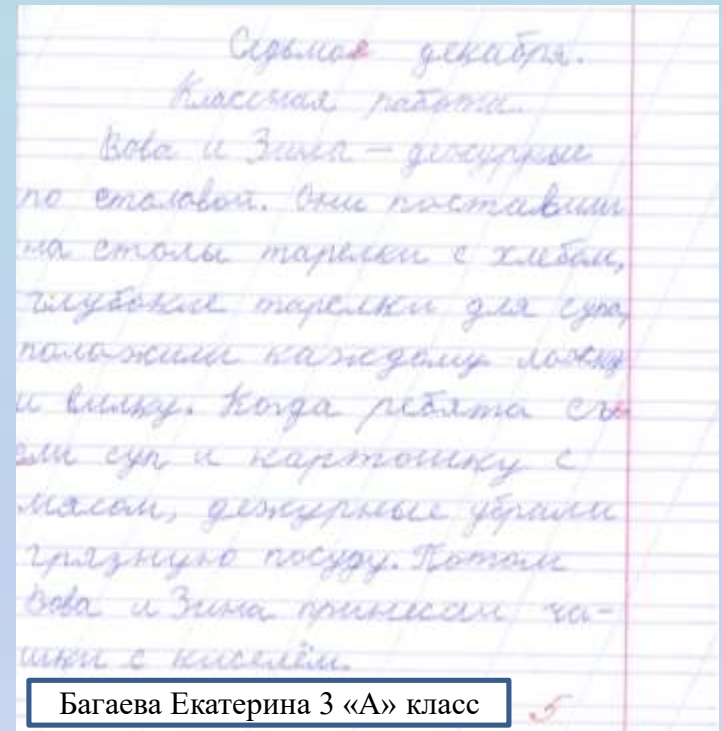 Седьмое декабря.
Классная работа.
Вова и Зина – дежурные
по столовой. Они поставили
на столы тарелки с хлебом,
глубокие тарелки для супа,
положили каждому ложку
и вилку. Когда ребята съ
ели суп и картошку с
мясом, дежурные убрали
грязную посуду. Потом
Вова и Зина принесли ча-
шки с киселём.
Багаева Екатерина 3 «А» класс
5